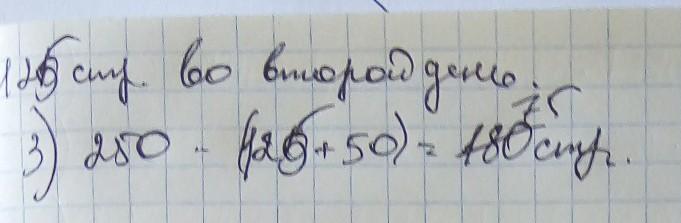 125 стр. во второй день.
75
3) 250 - (125+50) = 180 стр.